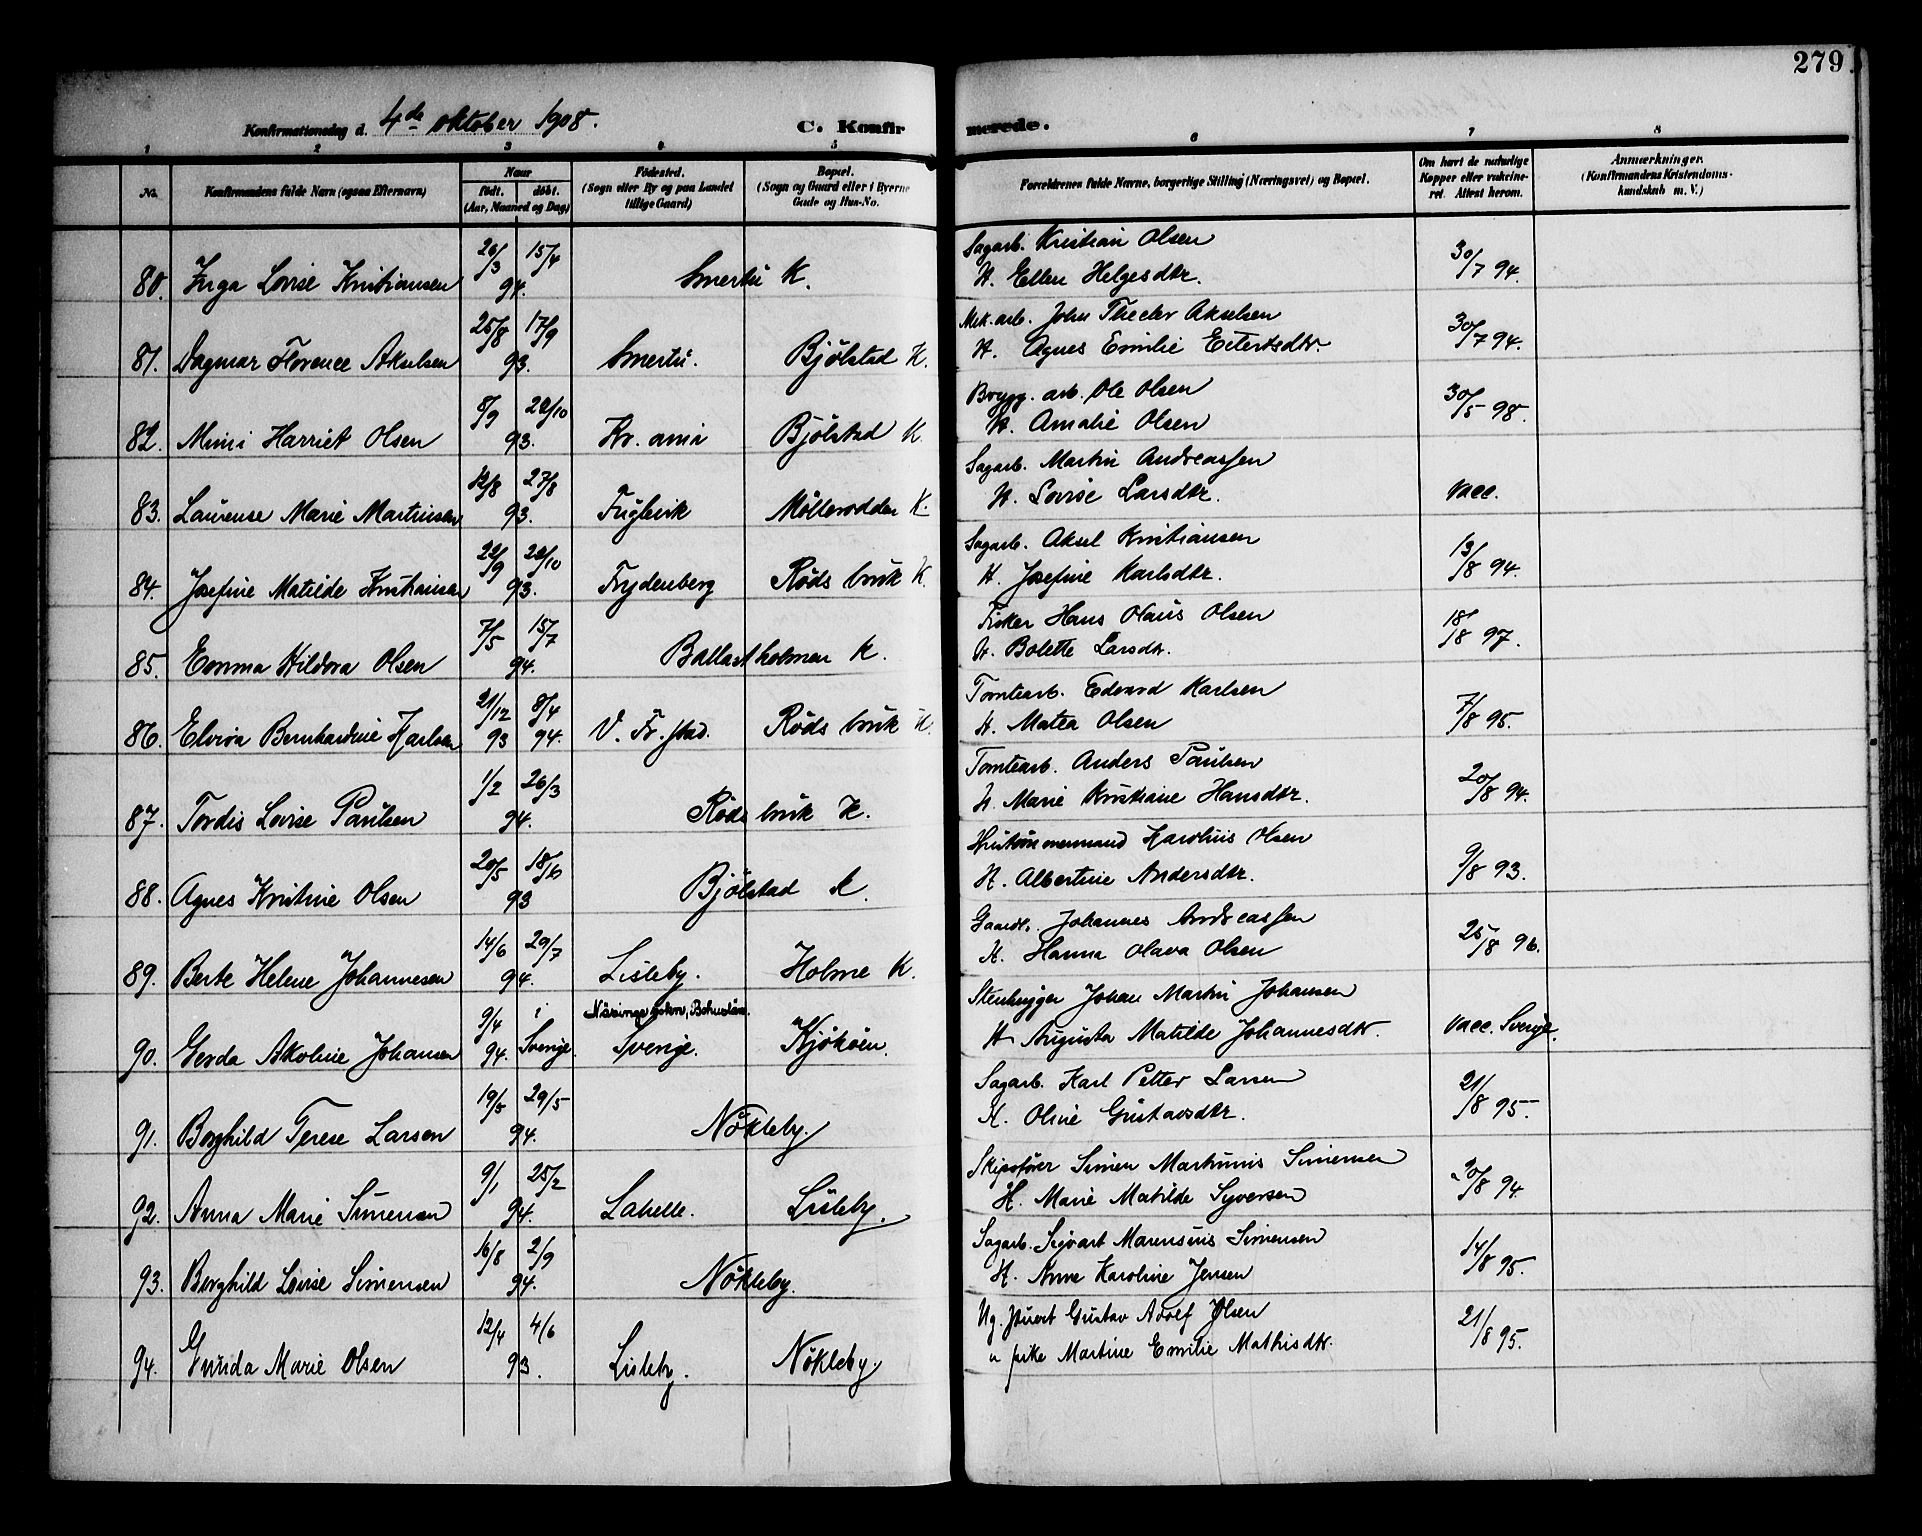 279
Konfirmationsdag d. 4de oktober 1908.
C. Konfirmerede.
1 2 3 4 5 6 7 8
No.
Konfirmandens fulde Navn (ogsaa Efternavn)
Naar
født. døbt.
(Aar, Maaned og Dag)
Fødested.
(Sogn eller By og paa Landet
tillige Gaard)
Bopæl.
(Sogn og Gaard eller i Byerne
Gade og Hus-No.
Forældrenes fulde Navne, borgerlige Stilling (Næringsvei) og Bopæl.
Om havt de naturlige
Kopper eller vakcine-
ret. Attest herom.
Anmærkninger.
(Konfirmandens Kristendoms-
kundskab m. V.)
26/3 15/4 Sagarb. Kristian Olsen
80. Inga Lovise Kristiansen 94. Smertu K. H. Ellen Helgesdtr. 30/7 94.
25/8 17/9 Mek. arb. John Theeler Akselsen
81. Dagmar Florence Akselsen 93. Smertu. Bjølstad K. H. Agnes Emilie Eilertsdtr. 30/7 94.
8/9 22/10 Brygg. arb. Ole Olsen
82. Mimi Harriet Olsen 93. Kr. ania Bjølstad K. H. Amalie Olsen 30/5 98.
12/8 27/8 Sagarb. Martin Andreassen
83. Laurense Marie Martinsen 93. Fuglevik Møllerodden K. H. Lovise Larsdtr. vacc.
22/9 22/10 Sagarb. Aksel Kristiansen
84. Josefine Matilde Kristiansen 93. Frydenberg Røds bruk K. H. Josefine Karlsdtr. 13/8 94.
7/5 15/7 Fisker Hans Olaus Olsen
85. Emma Hildora Olsen 94. Ballastholmen K. H. Bolette Larsdtr. 18/8 97.
21/12 8/4 Tomtearb. Edvard Karlsen
86. Elvira Bernhardine Karlsen 93 94. V. Fr.stad. Røds bruk K. H. Matea Olsen 7/8 95.
1/2 26/3 Tomtearb. Anders Paulsen
87. Tordis Lovise Paulsen 94. Røds bruk K. H. Marie Kristiane Hansdtr. 20/8 94.
20/5 18/6 Hustømmermand Karolius Olsen
88. Agnes Kristine Olsen 93 Bjølstad K. H. Albertine Andersdtr. 9/8 93.
14/6 29/7 Gaardr. Johannes Andreassen
89. Berte Helene Johannesen 94. Lisleby. Holme K. H. Hanna Olava Olsen 25/8 96.
9/4 i Näsinge sokn, Bohuslän. Stenhugger Johan Martin Johansen
90. Gerda Akoline Johansen 94. Sverige. Sverige. Kjøkøen. H. Augusta Matilde Johannesdtr vacc. Sverige.
19/5 29/5 Sagarb. Karl Petter Larsen
91. Borghild Terese Larsen 94. Nökleby. H. Oline Gustavsdtr. 21/8 95.
9/1 25/2 Skipsfører Simen Martinius Simensen
92. Anna Marie Simensen 94. Lahelle. Lisleby. H. Marie Matilde Syversen 20/8 94
16/8 2/9 Sagarb. Sigvart Marensius Simensen
93. Borghild Lovise Simensen 94. Nökleby. H. Anne Karoline Jensen 14/8 95.
12/4 4/6 Ug. Gustav Adolf Olsen
94. Gunda Marie Olsen 93. Lisleby. Nökleby. u pike Martine Emilie Mathisdtr. 21/8 95.